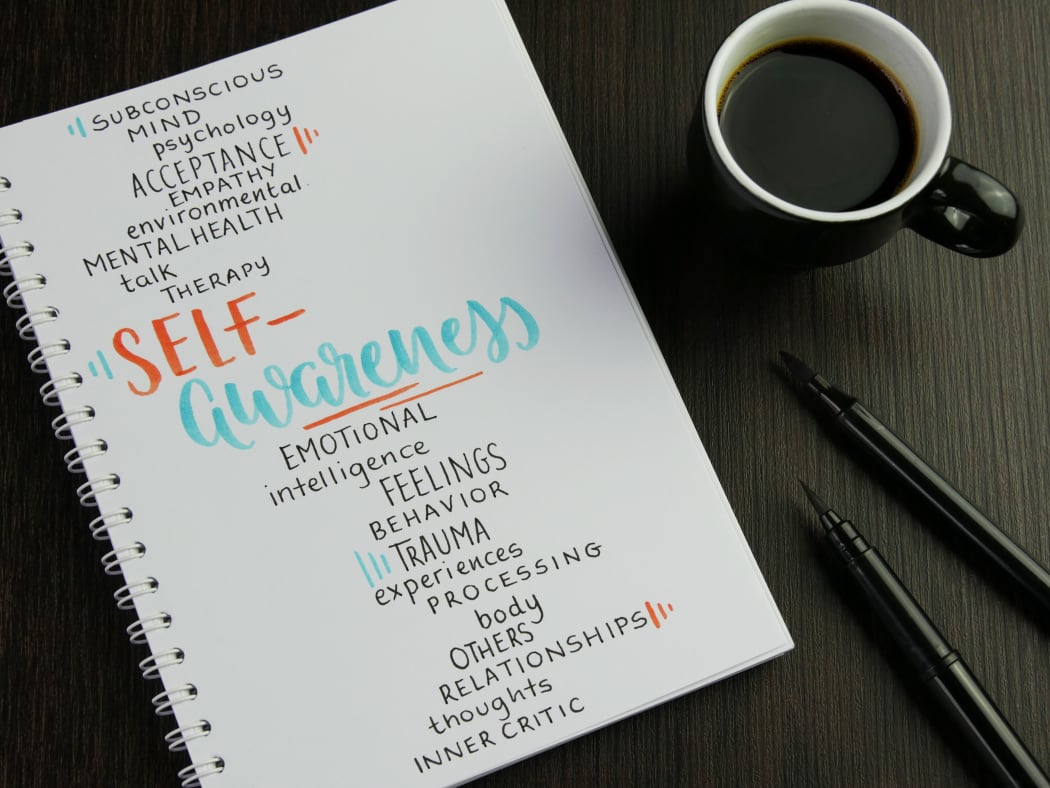 SUBCONSCIOUS
MIND
psychology
ACCEPTANCE
EMPATHY
environmental
MENTAL HEALTH
talk
THERAPY
SELF-
awareness
EMOTIONAL
intelligence
FEELINGS
BEHAVIOR
TRAUMA
experiences
PROCESSING
body
OTHERS
RELATIONSHIPS
thoughts
INNER CRITIC